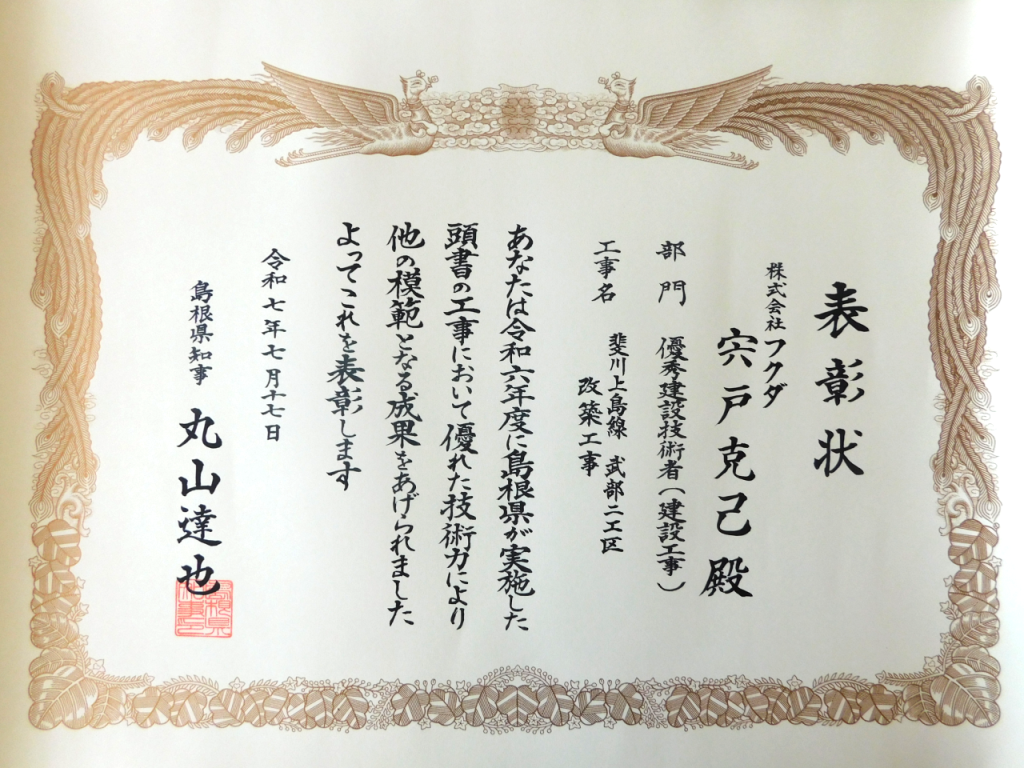 表彰状
株式会社フクダ
宍戸克己 殿
部門 優秀建設技術者(建設工事)
工事名 斐川上島線 武部二工区
改築工事
あなたは令和六年度に島根県が実施した
頭書の工事において優れた技術力により
他の模範となる成果をあげられました
よってこれを表彰します
令和七年七月十七日
島根県知事 丸山達也